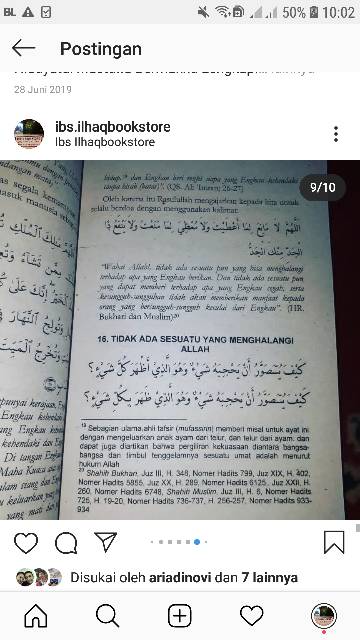 BL
50%
10:02
Postingan
28 Juni 2019
ibs.ilhaqbookstore
Ibs Ilhaqbookstore
9/10
hidup," dan Engkau beri rezki siapa yang Engkau kehendaki
tanpa hisab (batas)". (QS. Ali Imran; 26-27)
Oleh karena itu Rasulullah mengajarkan kepada kita untuk
selalu berdoa dengan menggunakan kalimat:
اَللّٰهُمَّ لَا مَانِعَ لِمَا أَعْطَيْتَ وَلَا مُعْطِيَ لِمَا مَنَعْتَ وَلَا يَنْفَعُ ذَا
الْجَدِّ مِنْكَ الْجَدُّ
"Wahai Allah!, tidak ada sesuatu pun yang bisa menghalangi
terhadap apa yang Engkau berikan. Dan tidak ada sesuatu pun
yang dapat memberi terhadap apa yang Engkau cegah, serta
kesungguh-sungguhan tidak akan memberikan manfaat kepada
orang yang bersungguh-sungguh kecuali dari Engkau". (HR.
Bukhari dan Muslim)
16. TIDAK ADA SESUATU YANG MENGHALANGI
ALLAH
كَيْفَ يُتَصَوَّرُ أَنْ يَحْجُبَهُ شَيْءٌ وَهُوَ الَّذِي أَظْهَرَ كُلَّ شَيْءٍ؟
كَيْفَ يُتَصَوَّرُ أَنْ يَحْجُبَهُ شَيْءٌ وَهُوَ الَّذِي ظَهَرَ بِكُلِّ شَيْءٍ؟
Sebagian ulama ahli tafsir (mufassirin) memberi misal untuk ayat ini
dengan mengeluarkan anak ayam dari telur, dan telur dari ayam. dan
dapat juga diartikan bahwa pergiliran kekuasaan diantara bangsa-
bangsa dan timbul tenggelamnya sesuatu umat adalah menurut
hukum Allah
Shahih Bukhari, Juz III, H. 348, Nomer Hadits 799, Juz XIX, H. 402,
Nomer Hadits 5855, Juz XX, H. 289, Nomer Hadits 6125, Juz XXII, H.
260, Nomer Hadits 6748, Shahih Muslim, Juz III, H. 6, Nomer Hadits
725, H. 19-20, Nomer Hadits 736-737, H. 256-257, Nomer Hadits 933-
934
Disukai oleh ariadinovi dan 7 lainnya